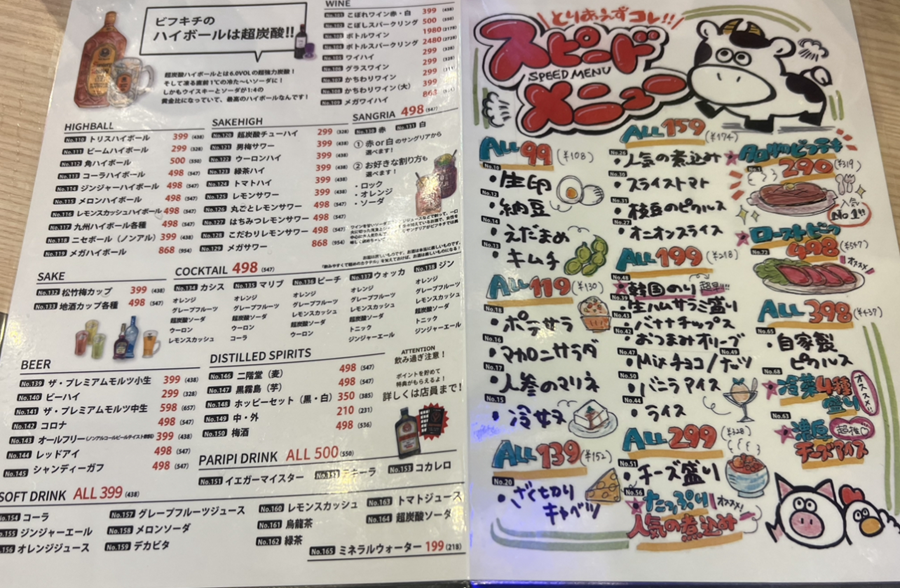 ビフキチの
ハイボールは超炭酸!!
超炭酸ハイボールとは6.0VOLの超強力炭酸！
しかもウイスキーとソーダが1:4の
黄金比になっていて、最高のハイボールなんです！
WINE
こぼれワイン赤・白 399 (438)
こぼしスパークリング 500 (550)
ボトルワイン 1980
ボトルスパークリング 2480
ワイハイ 299
グラスワイン 299
かちわりワイン 299
かちわりワイン（大） 399
メガワイハイ 868
HIGHBALL
No.110 トリスハイボール 399 (438)
No.111 ビームハイボール 299 (328)
No.112 角ハイボール 500 (550)
No.113 コーラハイボール 498 (547)
No.114 ジンジャーハイボール 498 (547)
No.115 メロンハイボール 498 (547)
No.116 レモンスカッシュハイボール 498 (547)
No.117 九州ハイボール各種 498 (547)
No.118 ニセボール（ノンアル） 399 (438)
No.119 メガハイボール 868 (954)
SAKEHIGH
No.120 超炭酸チューハイ 299 (328)
No.121 男梅サワー 399 (438)
No.122 ウーロンハイ 399 (438)
No.123 緑茶ハイ 399 (438)
No.124 トマトハイ 399 (438)
No.125 レモンサワー 399 (438)
No.126 丸ごとレモンサワー 498 (547)
No.127 はちみつレモンサワー 498 (547)
No.128 こだわりレモンサワー 498 (547)
No.129 メガサワー 868 (954)
SANGRIA 498 (547)
No.130 赤 No.131 白
① 赤 or 白 のサングリアから
選べます！
② お好きな割り方も
選べます！
・ロック
・オレンジ
・ソーダ
SAKE
No.132 松竹梅カップ 399 (438)
No.133 地酒カップ各種 498 (547)
COCKTAIL 498 (547)
No.134 カシス
オレンジ
グレープフルーツ
超炭酸ソーダ
ウーロン
レモンスカッシュ
No.135 マリブ
オレンジ
グレープフルーツ
超炭酸ソーダ
ウーロン
コーラ
No.136 ピーチ
オレンジ
グレープフルーツ
レモンスカッシュ
超炭酸ソーダ
ウーロン
No.137 ウォッカ
オレンジ
グレープフルーツ
レモンスカッシュ
超炭酸ソーダ
トニック
ジンジャーエール
No.138 ジン
オレンジ
グレープフルーツ
レモンスカッシュ
超炭酸ソーダ
トニック
ジンジャーエール
BEER
No.139 ザ・プレミアムモルツ小生 399 (438)
No.140 ビーハイ 299 (328)
No.141 ザ・プレミアムモルツ中生 598 (657)
No.142 コロナ 498 (547)
オールフリー(ノンアルコールビールテイスト飲料) 399 (438)
No.144 レッドアイ 498 (547)
No.145 シャンディーガフ 498 (547)
DISTILLED SPIRITS
No.146 二階堂（麦） 498 (547)
No.147 黒霧島（芋） 498 (547)
No.148 ホッピーセット（黒・白） 350 (385)
No.149 中・外 210 (231)
No.150 梅酒 498 (547)
ATTENTION
飲み過ぎ注意！
ポイントを貯めて
特典がもらえるよ！
詳しくは店員まで！
PARIPI DRINK ALL 500 (550)
No.151 イエガーマイスター
テキーラ
No.153 コカレロ
SOFT DRINK ALL 399 (438)
No.154 コーラ
No.155 ジンジャーエール
No.156 オレンジジュース
No.157 グレープフルーツジュース
No.158 メロンソーダ
No.159 デカビタ
No.160 レモンスカッシュ
No.161 烏龍茶
No.162 緑茶
No.163 トマトジュース
No.164 超炭酸ソーダ
No.165 ミネラルウォーター 199 (218)
とりあえずコレ!!
スピード
SPEED MENU
メニュー
ALL 99 (¥108)
・生卵
・納豆
・えだまめ
・キムチ
ALL 119 (¥130)
・ポテサラ
・マカロニサラダ
・人参のマリネ
・冷奴
ALL 139 (¥152)
・ざく切り
キャベツ
ALL 159 (¥174)
・人気の煮込み
・スライストマト
・枝豆のピクルス
・オニオンスライス
ALL 199 (¥218)
韓国のり
・生ハムサラミ盛り
・バナナチップス
・おつまみオリーブ
・Mixチョコ/ナッツ
・バニラアイス
・ライス
ALL 299 (¥328)
・チーズ盛り
たっぷり
人気の煮込み
290 (¥319)
人気
No.1!!
498 (¥547)
オススメ
ALL 398 (¥437)
・自家製
ピクルス
冷菜4種
盛り
オススメ!!